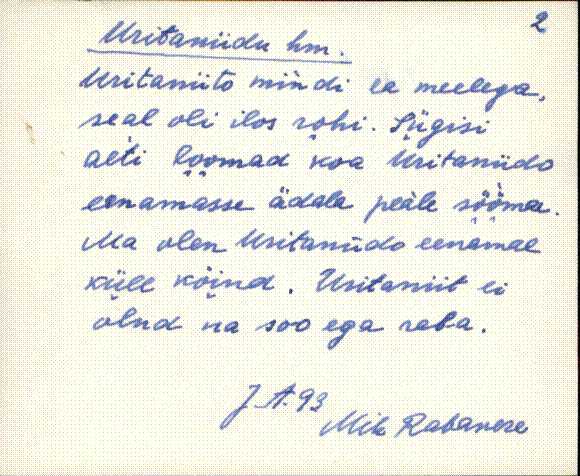 2
Uritaniidu hm.
Uritaniito mindi ea meelega,
seal oli ilos rohi. Sügisi
aeti loomad koa Uritaniido
eenamasse ädala peäle sööma.
Ma olen Uritaniido eenamal
küll köind. Uritaniit ei
olnd na soo ega raba.
J. A. 93
Mih Rabanere